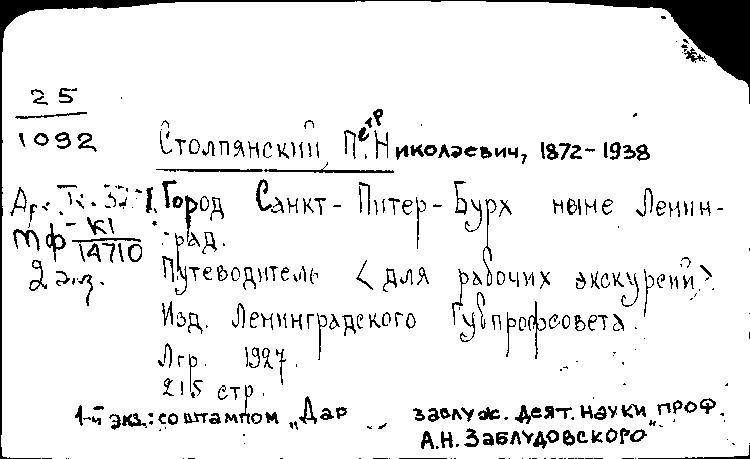 25
1092
Столпянский, Петр Николаевич, 1872-1938
Город Санкт-Питер-Бурх ныне Ленин-
град.
Мф К1
14710
2 экз.
Путеводитель <для рабочих экскурсий>.
Изд. Ленинградского Губпрофсовета.
Лгр. 1927.
215 стр.
1-й экз.: со штампом „Дар заслуж. деят. науки проф.
А.Н. Заблудовского"